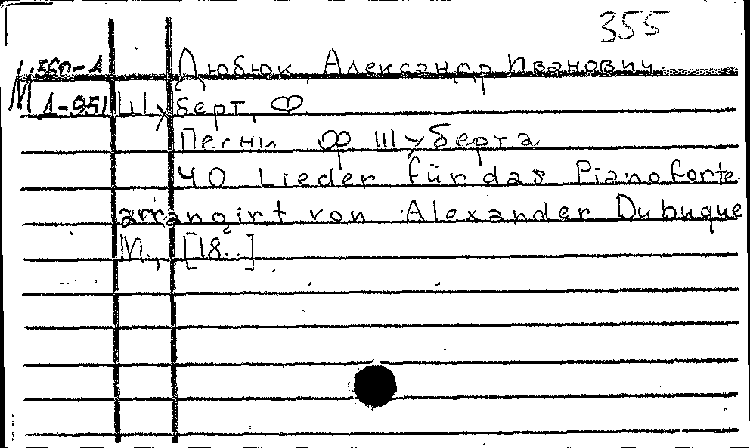 355
М 560-1 Дюбюк, Александр Иванович.
М 1-951 Шуберт, Ф
Песни Ф Шуберта
40 Lieder für das Pianoforte
arrangirt von Alexander Dubuque
М., [18..]